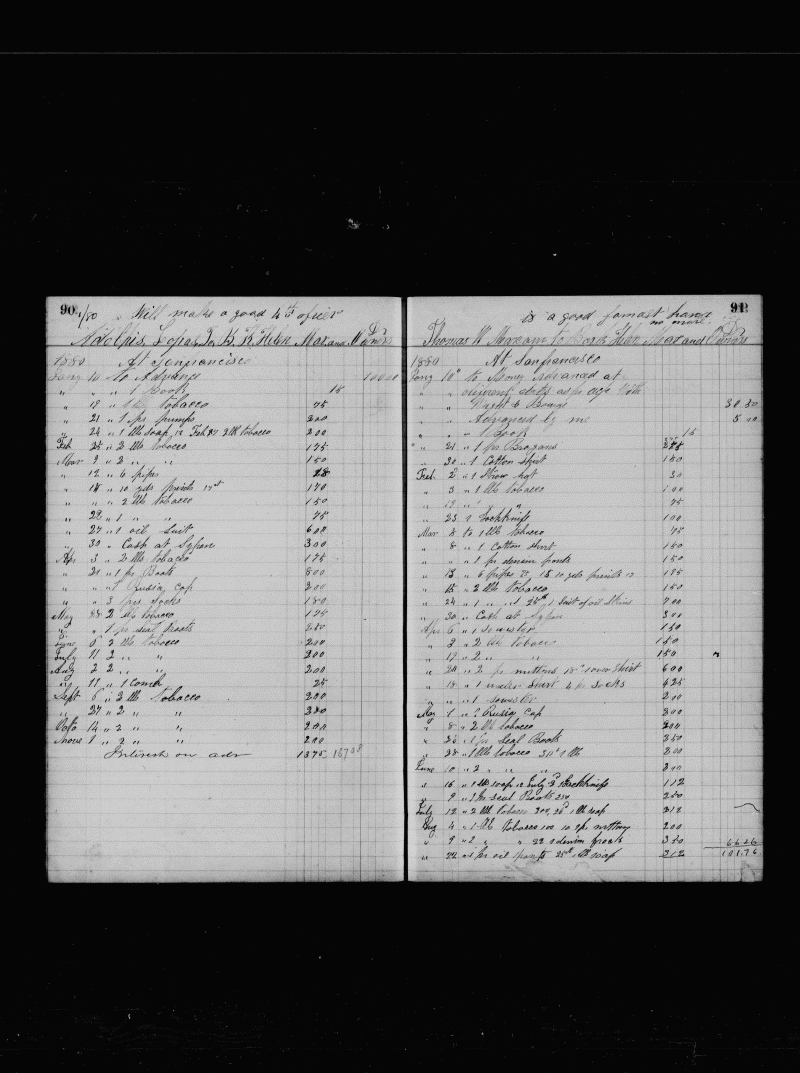 90
1/80 Will make a good 4th oficer
Adolphis Dr Bk Helen Mar and Owners
1880 At Sanfrancisco
Jany 10 To Advance 100 00
" " " 1 Book 15
" 19 " 1 lb tobacco 75
" 21 " 1 pr pumps 200
" 24 " 1 lb soap 12 Feb 2 lb tobacco 200
Feb 25 " 2 lbs tobacco 175
Mar 9 " 2 " " 150
" 12 " 4 pipes 28
" 18 " 10 yds prints 170
" " " 2 lbs tobacco 150
" 22 " 1 " " 75
" 27 " 1 oil suit 600
" 30 " Cash at Sypan 300
Apr 3 " 2 lbs tobacco 175
" 20 " 1 pr Boots 800
" " " 1 Rusig cap 300
" " " 3 prs socks 180
May 2 lbs tobacco 175
" " 1 pr seal Boots 250
June 6 " 2 lbs tobacco 200
July 11 2 " " 200
Aug 2 2 " " 200
" 11 " 1 Comb 25
Sept 6 " 2 lbs tobacco 200
" 27 " 2 " " 200
Octo 14 " 2 " " 200
Nove 1 " 2 " " 200
Interest on adv 1375 16708
91
is a good formast hand
no more
Thomas W to Bark Helen Mar and Owners
1880 At Sanfrancisco
Jany 10th to Money Advanced at
" " debts as pr
" " 30 30
" " Advanced by me 5 00
" " " 1 Book 15
" 21 " 1 pr Brogans
" 31 " 1 Cotton Shirt 150
Feb 2 " 1 Straw hat 30
" 3 " 1 lb tobacco 100
" 19 " " " 75
" 23 1 Sockknife 100
Mar 8 to 1 lb tobacco 75
" 8 " 1 Cotton Shirt 150
" " " 1 pr denim pants 150
" 13 " 6 pipes 15 10 yds prints 195
" 15 " 2 lbs tobacco 150
" 24 " 1 " " 25th 1 Suit of oil Skins 700
" 30 " Cash at Sypan 300
Apr 6 " 1 Souwster 150
" 2 " 2 lbs tobacco 150
" 17 " 2 " " 150
" 20 " 2 pr mittens 18 1 over Shirt 600
" 18 " 1 under Shirt 4 pr Socks 425
" " " 1 Souwster 200
May 1 " 1 Rusig Cap 300
" 8 " 2 lbs tobacco 200
" " 1 pr Seal Boots 250
" 28 " 1 lb tobacco 200
June 10 " 2 " " 200
" 16 " 1 lb soap 12 July 2d 1 Sockknife 112
" 9 " 1 pr Seal Boots 250 250
July 12 " 2 lbs tobacco 200 1 lb soap 212
Aug 4 " 1 lb tobacco 100 10 2 pr mittens 200
" 9 " 2 " " 22 1 denim frock 350 66 26
" 22 " 1 pr oil pants 25th 1 lb soap 212 101.76